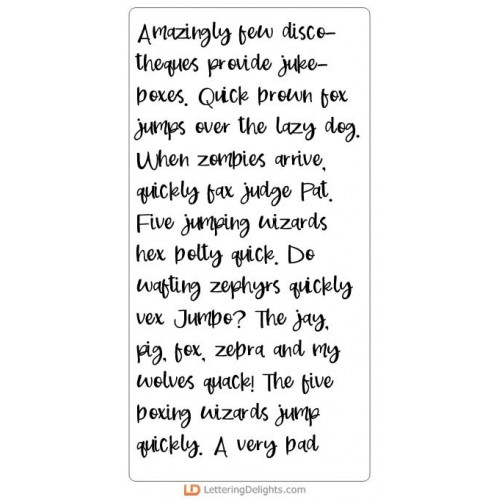 Amazingly few disco-
theques provide juke-
boxes. Quick brown fox
jumps over the lazy dog.
When zombies arrive,
quickly fax judge Pat.
Five jumping wizards
hex bolty quick. Do
wafting zephyrs quickly
vex Jumbo? The jay,
pig, fox, zebra and my
wolves quack! The five
boxing wizards jump
quickly. A very bad
LD LetteringDelights.com